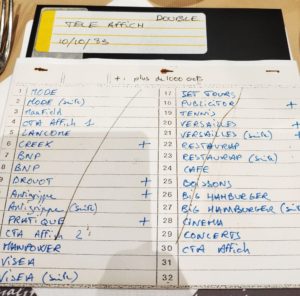 TELE AFFICH DOUBLE
10/10/85
+: plus de 1000 oct
1 MODE
2 MODE (suite)
3 Manfield
4 CTA Affich 1
5 LANCOME
6 CREEK +
7 BNP
8 BNP
9 DROUOT +
Antiquité +
Antiquité (suite)
PRATIQUE +
CTA Affich 2
MANPOWER
VISEA
VISEA (suite)
17 JET TOURS
18 PUBLICITOR +
19 TENNIS
20 VERSAILLES +
21 VERSAILLES (suite) +
22 RESTAURAP
23 RESTAURAP (suite)
24 CAFE
25 BOISSONS
26 BIG HAMBURGER
27 BIG HAMBURGER (suite)
28 CINEMA
29 CONCERTS
30 CTA Affich
31
32